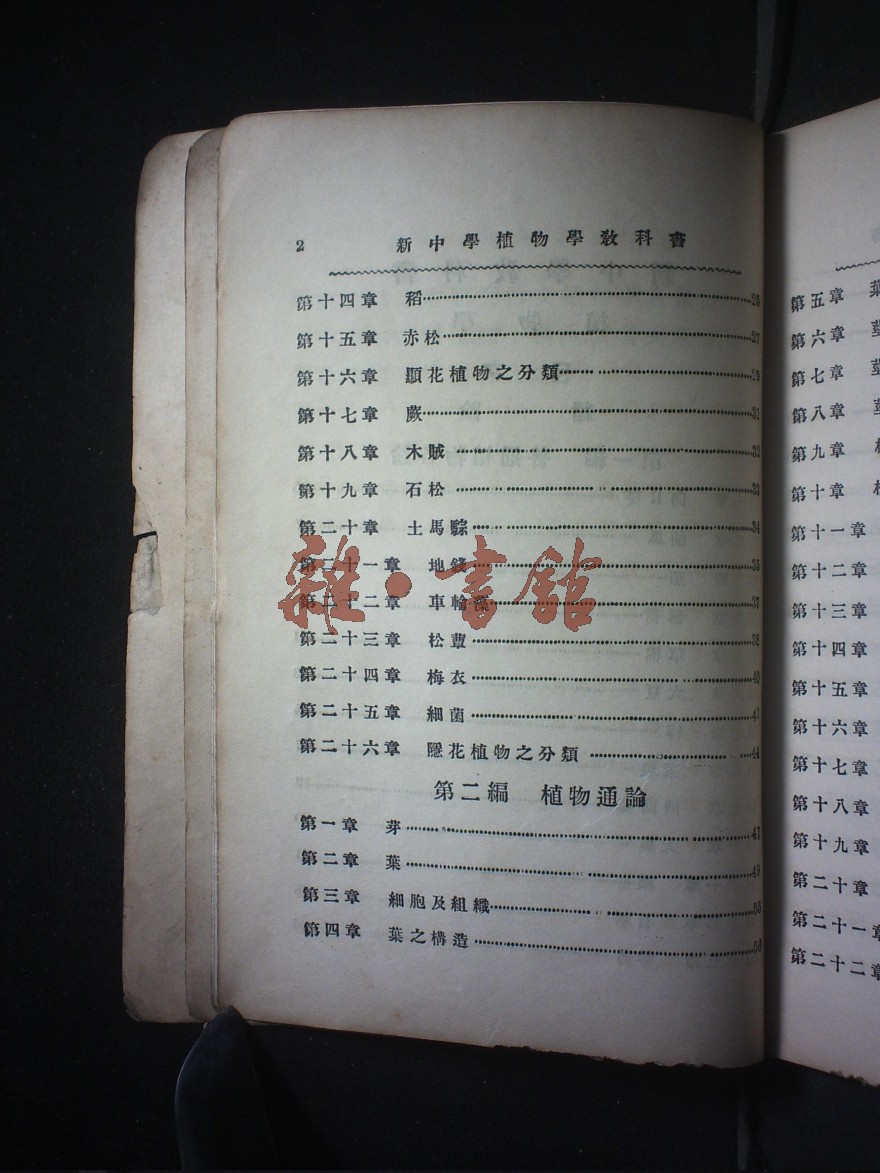 2 新中學植物學教科書
第十四章 稻……26
第十五章 赤松……27
第十六章 顯花植物之分類……29
第十七章 蕨……31
第十八章 木賊……32
第十九章 石松……33
第二十章 土馬騌……34
第二十一章 地錢……35
第二十二章 車輪藻……37
第二十三章 松蕈……38
第二十四章 梅衣……40
第二十五章 細菌……41
第二十六章 隱花植物之分類……44
第二編 植物通論
第一章 芽……47
第二章 葉……49
第三章 細胞及組織……
第四章 葉之構造……
雜·書館
第五章 葉
第六章
第七章
第八章
第九章
第十章
第十一章
第十二章
第十三章
第十四章
第十五章
第十六章
第十七章
第十八章
第十九章
第二十章
第二十一章
第二十二章